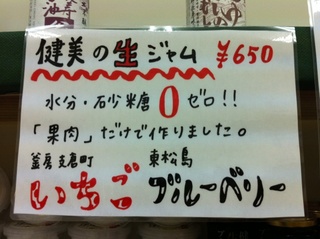 健美の生ジャム ¥650
水分・砂糖0ゼロ!!
「果肉」だけで作りました。
釜房支倉町 東松島
いちご ブルーベリー